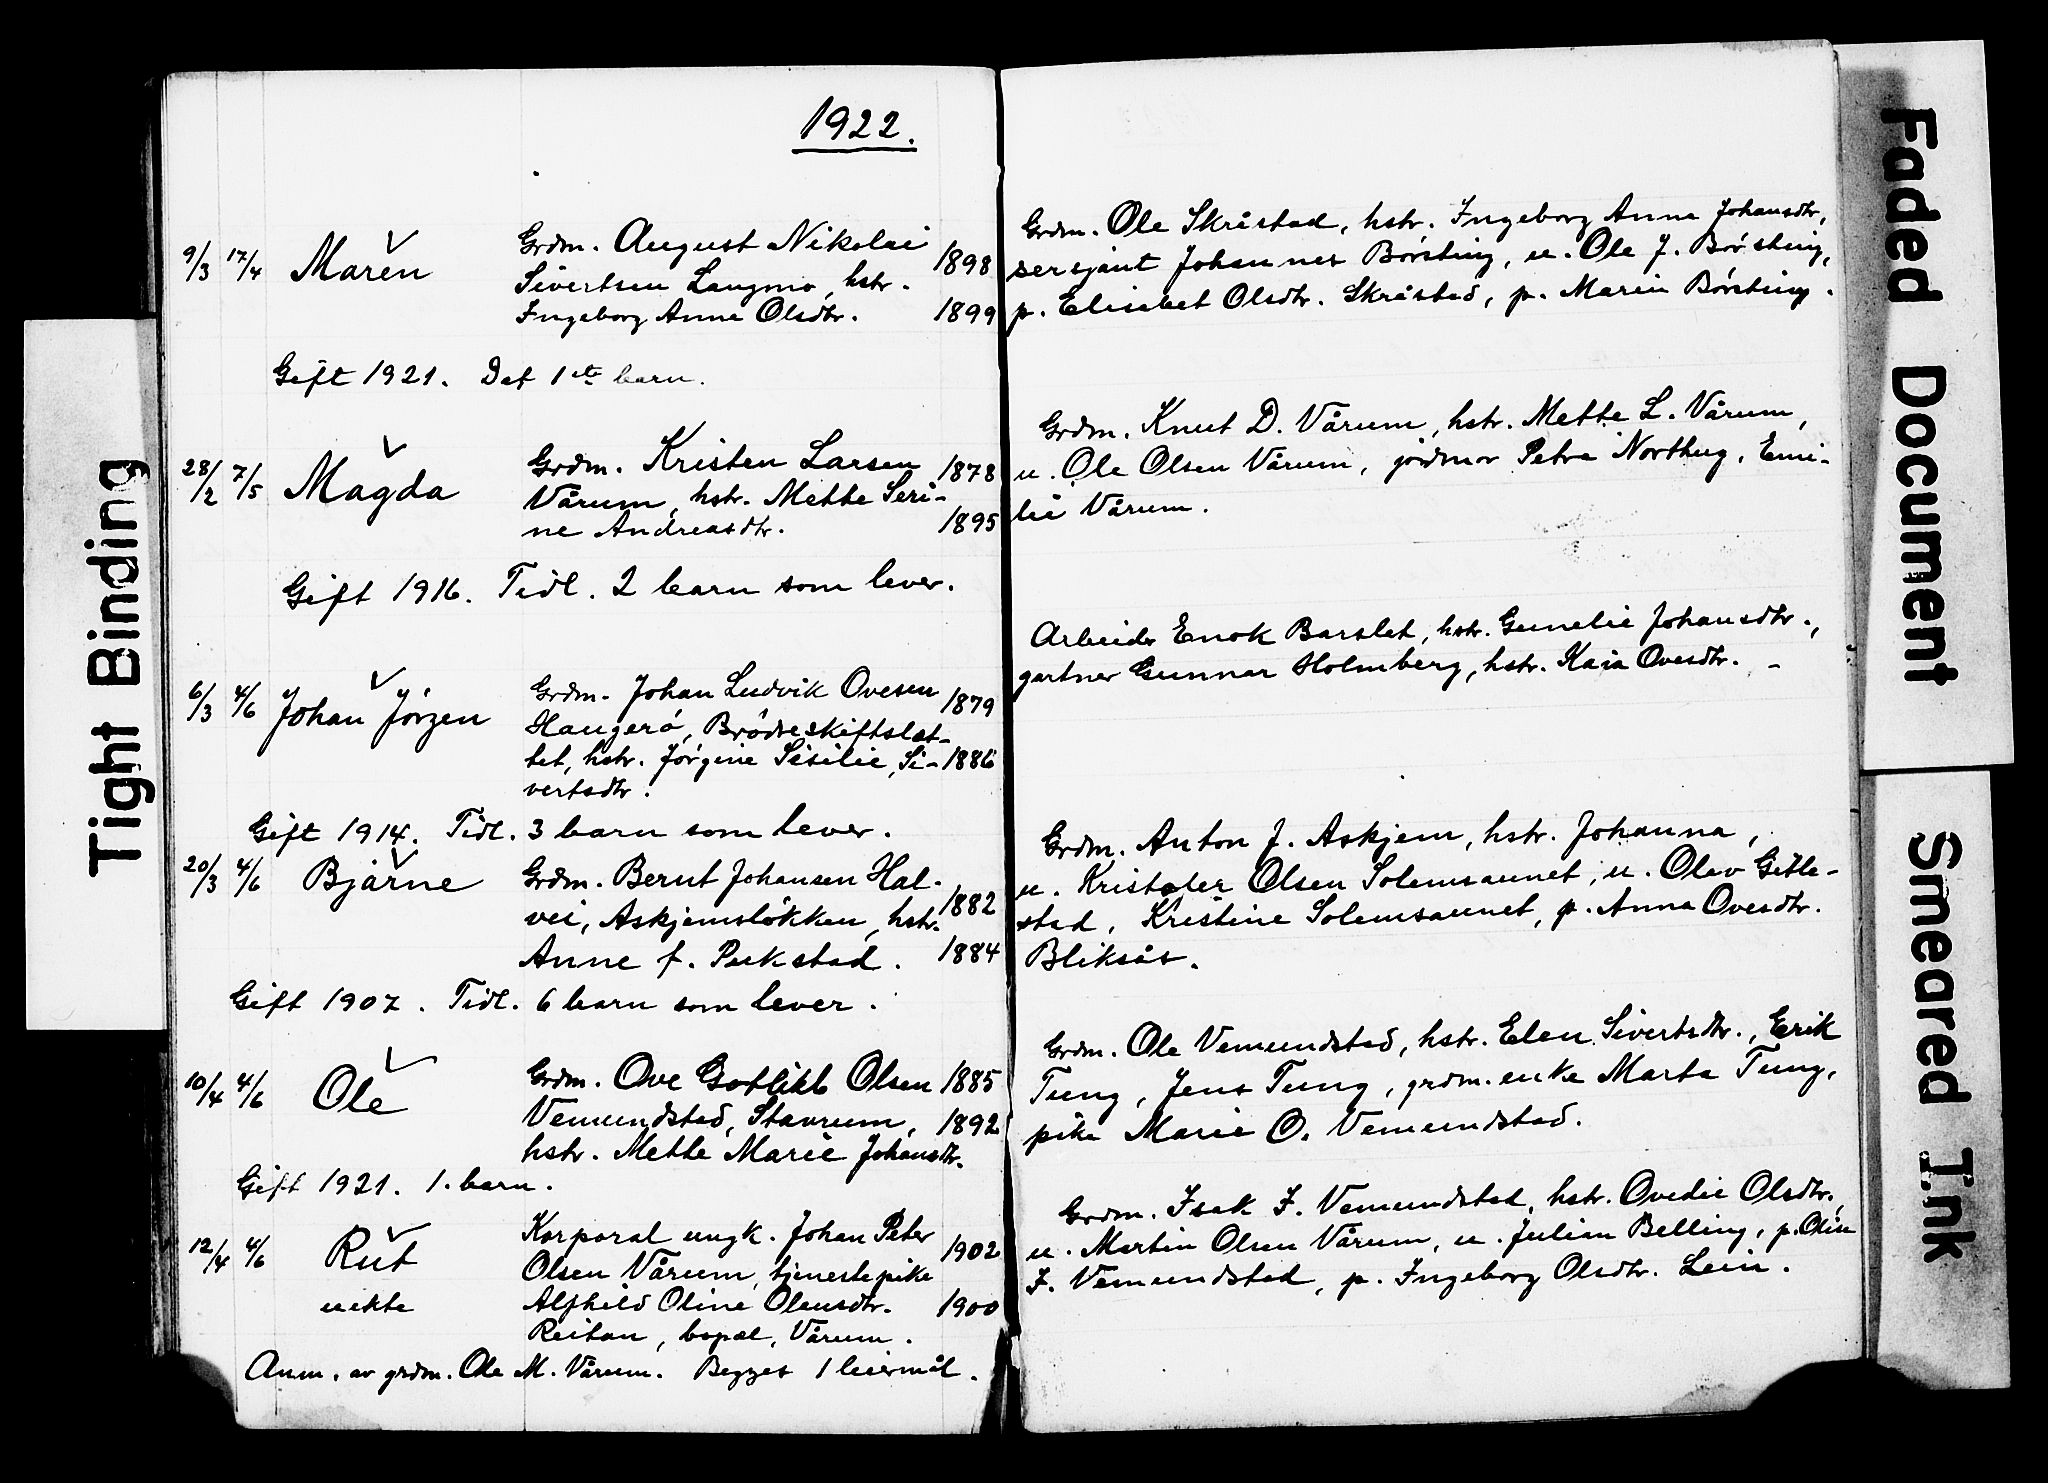 1922.
9/3 17/4 Maren Grdm. August Nikolai 1898
Sivertsen Langmo, hstr.
Ingeborg Anne Olsdtr. 1899
Gift 1921. Det 1ste barn.
28/2 7/5 Magda Grdm. Kristen Larsen 1878
Vårum, hstr. Mette Seri-
ne Andreasdtr. 1895
Gift 1916. Tidl. 2 barn som lever.
6/3 4/6 Johan Jörgen Grdm. Johan Ludvik Ovesen 1879
Haugerö, Brödreskiftslet-
tet, hstr. Jörgine Sisilie Si- 1886
vertsdtr.
Gift 1914. Tidl. 3 barn som lever.
20/3 4/6 Bjarne Grdm. Bernt Johansen Hal-
vei, Askjemslökken, hstr. 1882
Anne f. Pukstad. 1884
Gift 1907. Tidl. 6 barn som lever.
10/4 4/6 Ole Grdm. Ove Gotlikb Olsen 1885
Vemundstad, Stavrum, 1892
hstr. Mette Marie Johansdtr.
Gift 1921. 1. barn.
12/4 4/6 Rut Korporal ungk. Johan Peter 1902
Olsen Vårum, tjenestepike
uekte Alfhild Oline Olausdtr. 1900
Reitan, bopæl, Vårum.
Anm. av grdm. Ole M. Vårum. Begges 1 leiermål.
Grdm. Ole Skråstad, hstr. Ingeborg Anna Johansdtr,
sersjant Johannes Börsting, u. Ole J. Börsting,
p. Elisabet Olsdtr. Skråstad, p. Marin Börsting.
Grdm. Knut D. Vårum, hstr. Mette L. Vårum,
u. Ole Olsen Vårum, jordmor Petra Northug, Emi-
lie Vårum.
Arbeider Enok Barslet, hstr. Gunelie Johansdtr.,
gartner Gunnar Holmberg, hstr. Kaia Ovesdtr. -
Grdm. Anton J. Askjem, hstr. Johanna,
u. Kristofer Olsen Solemsaunet, u. Olav Gitle-
stad, Kristine Solemsaunet, p. Anna Ovesdtr.
Bliksås.
Grdm. Ole Vemundstad, hstr. Elen Sivertsdtr., Erik
Tung, Jens Tung, grdm.enke Marta Tung,
pike Marie O. Vemundstad.
Grdm. Isak I. Vemundstad, hstr. Ovedie Olsdtr,
u. Martin Olsen Vårum, u. Julian Belling, p. Olise
I. Vemundstad, p. Ingeborg Olsdtr. Lein.
Tight Binding
Faded Document
Smeared Ink